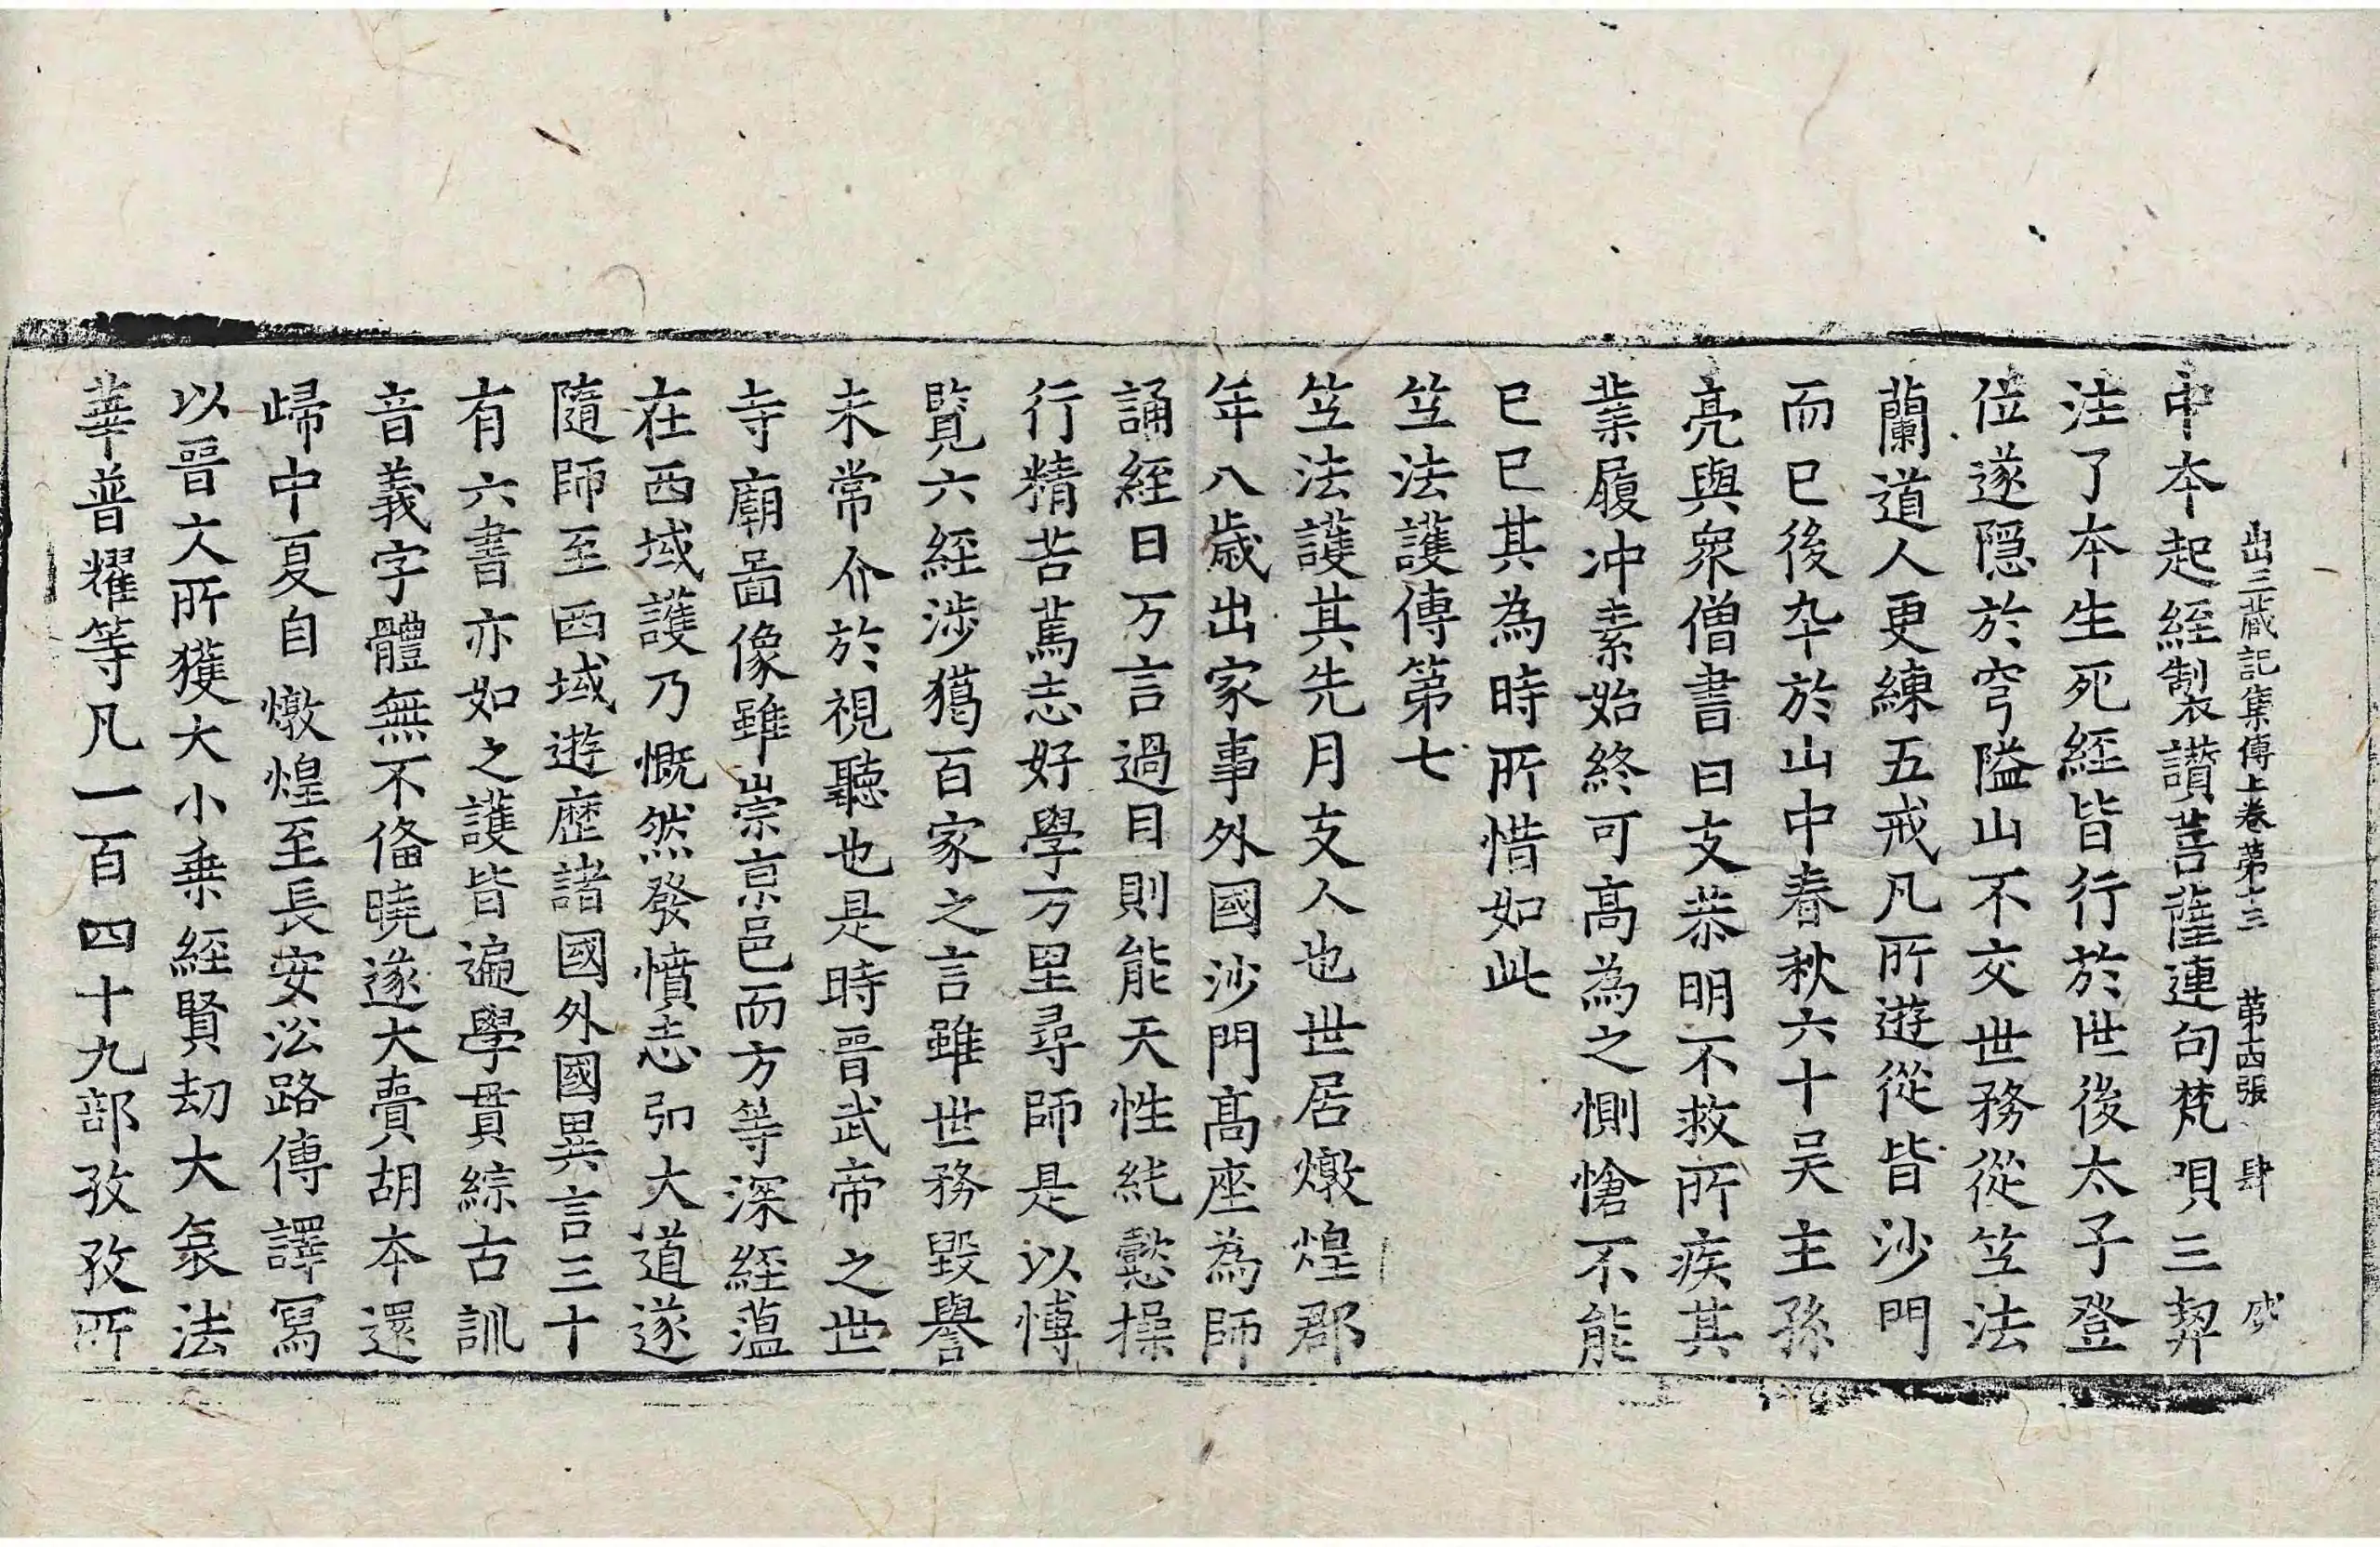 出三藏記集傳上卷第十三 第十四張 肆
中本起經製讃菩薩連句梵唄三契
注了本生死經皆行於世後太子登
位遂隱於穹隘山不交世務從竺法
蘭道人更練五戒凡所遊從皆沙門
而已後卒於山中春秋六十吴主孫
亮與衆僧書曰支恭明不救所疾其
業履冲素始終可高為之惻愴不能
已已其為時所惜如此
竺法護傳第七
竺法護其先月支人也世居燉煌郡
年八歲出家事外國沙門高座為師
誦經日万言過目則能天性純懿操
行精苦萬志好學万里尋師是以博
覽六經涉獦百家之言雖世務毀譽
未常介於視聽也是時晉武帝之世
寺廟啚像雖崇京邑而方等深經蕰
在西域護乃慨然發憤志弘大道遂
隨師至西域遊歷諸國外國異言三十
有六書亦如之護皆遍學貫綜古訓
音義字體無不俻曉遂大賷胡本還
歸中夏自燉煌至長安㳂路傳譯冩
以晉文所獲大小乗經賢劫大哀法
華普耀等凡一百四十九部孜孜所